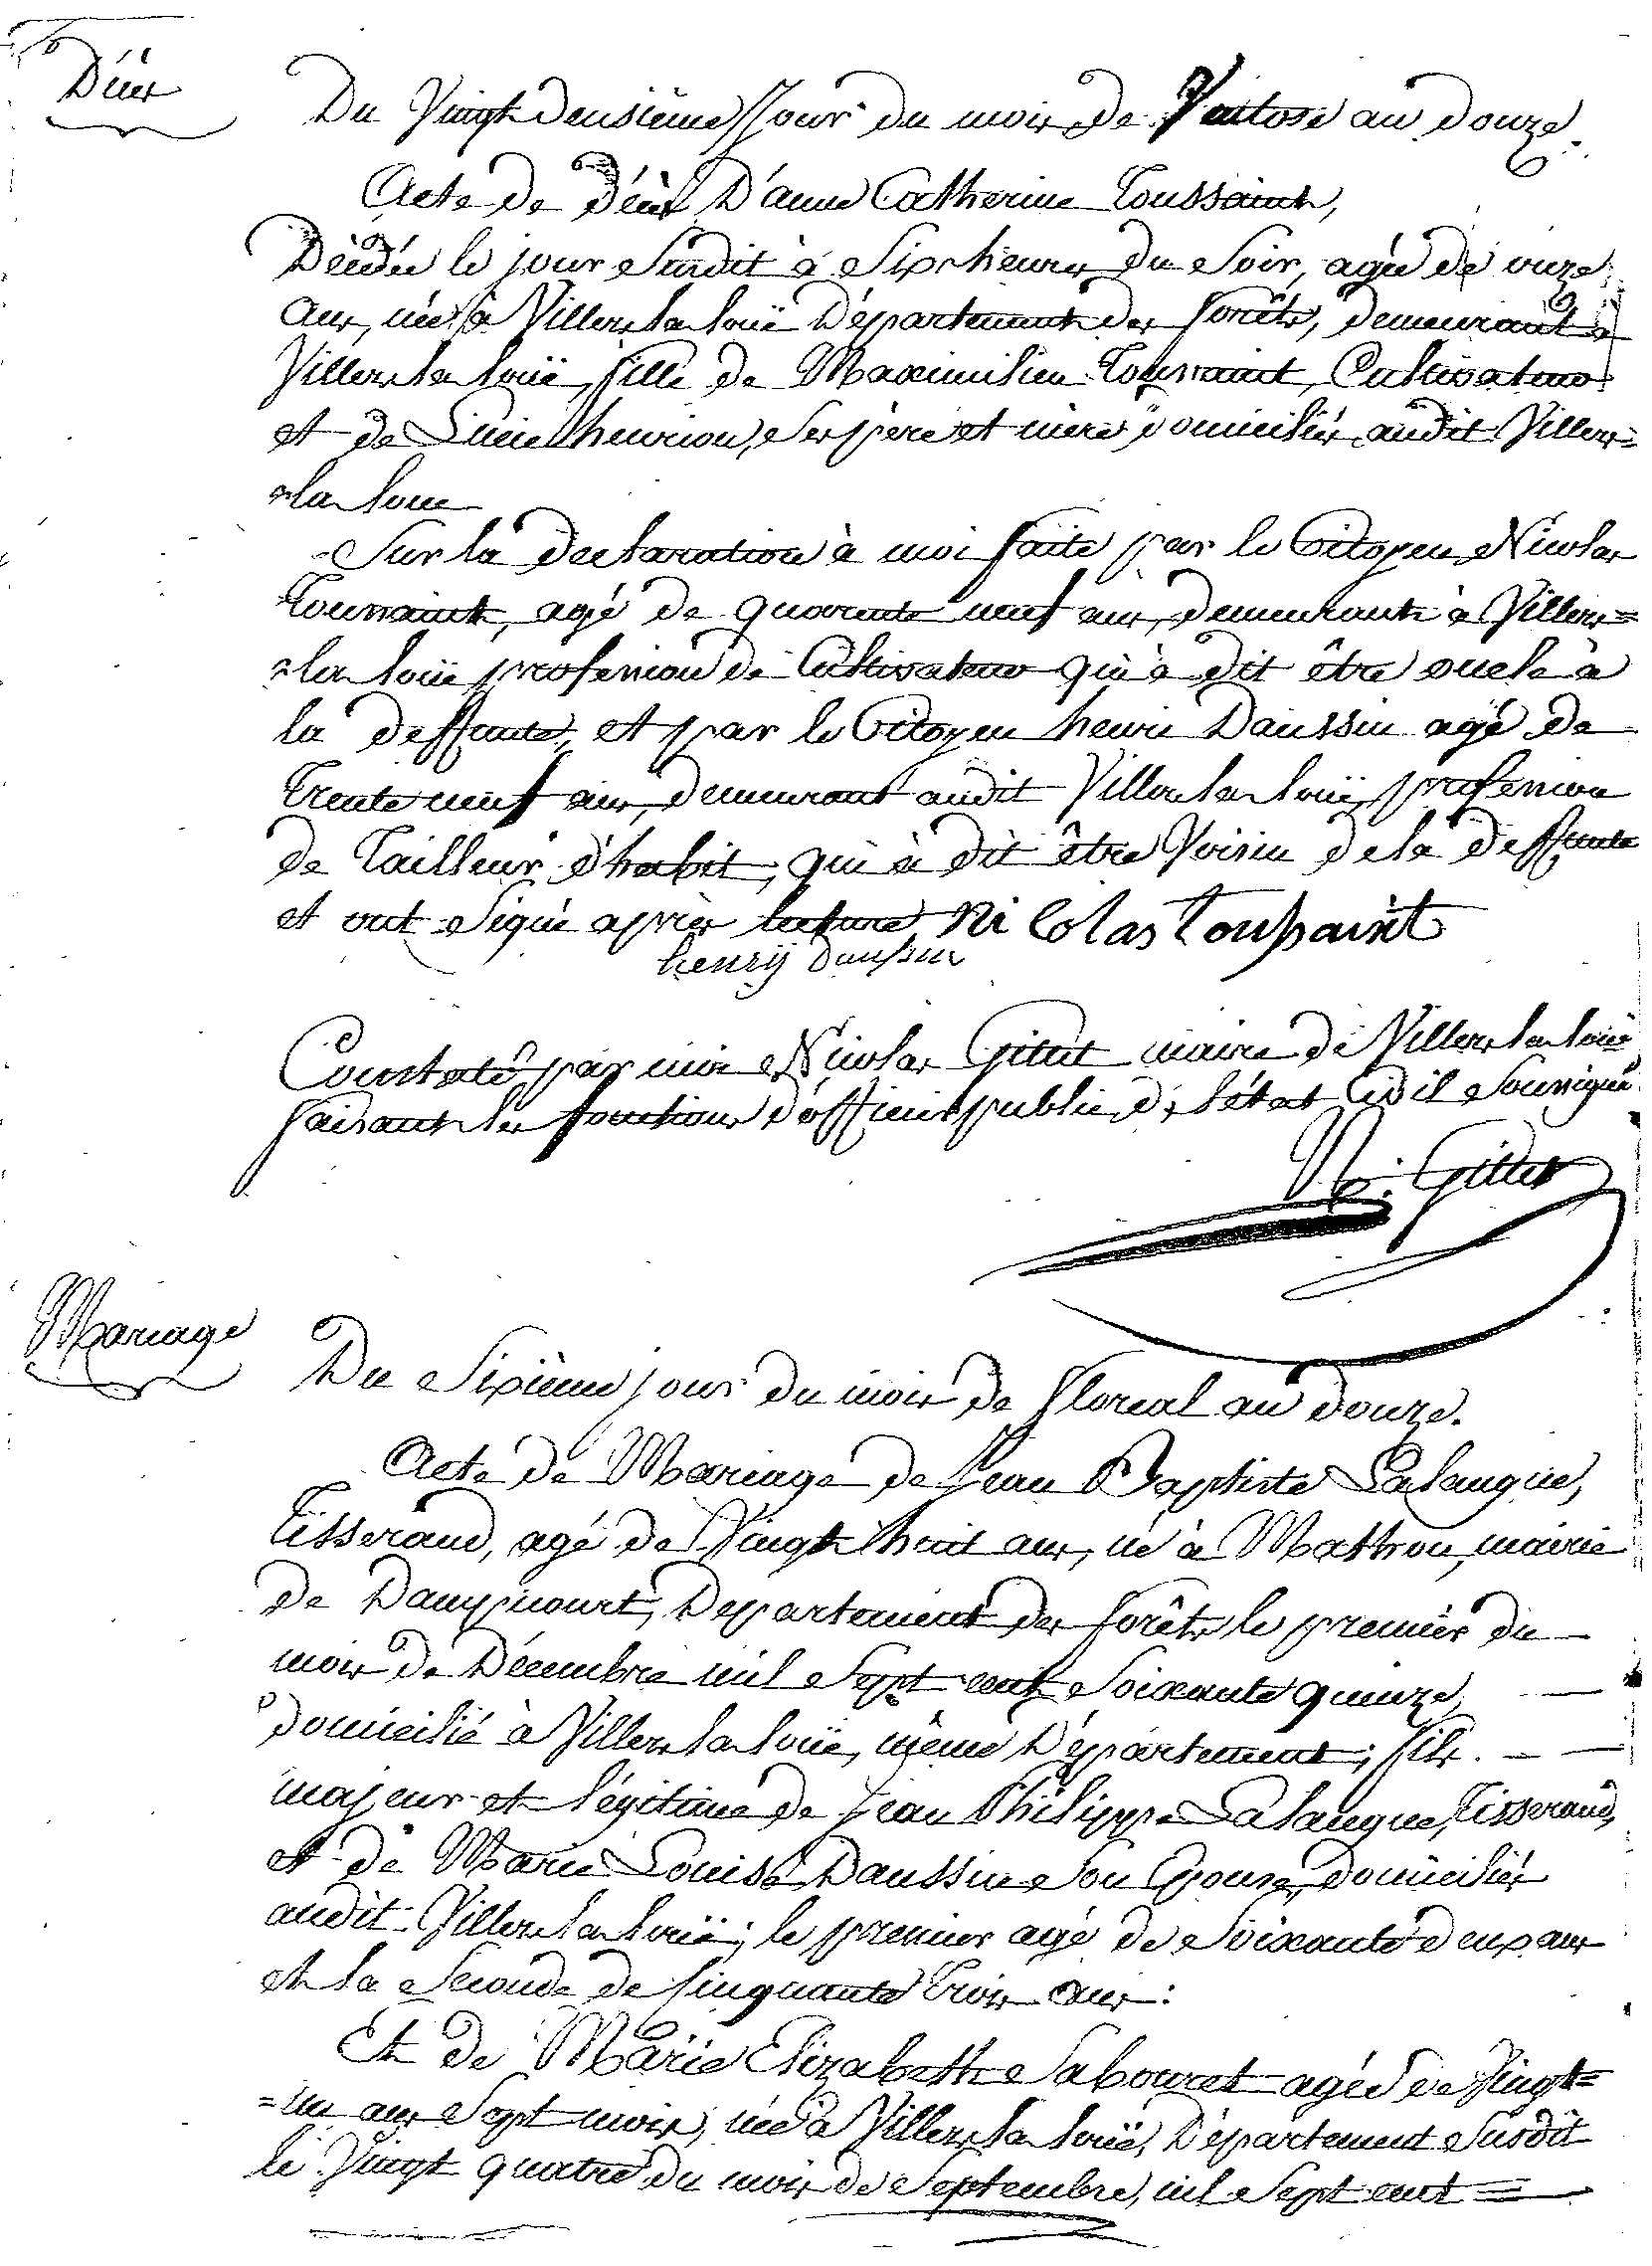 Décès
Du Vingt deusième Jour du mois de Ventose an douze.
Acte de Décès D'anne Catherine Toussaint,
Dècèdée le jour Susdit à Six heures du Soir, agée de onze
ans, née à Villers la loüe Département des forêts, demeurant à
Villers la loüe, fille de Maximilien Toussaint, Cultivateur
et de Lucie henrion, Ses père et mère domiciliés audit Villers=
=la loue
Sur la declaration à moi faite par le Citoyen Nicolas
Toussaint, agé de quarante neuf ans, demeurant à Villers=
=la loüe profession de Cultivateur qui à dit être oncle à
la deffunte, et par le Citoyen henri Daussin agé de
trente neuf ans, demeurant audit Villers la loüe, profession
de Tailleur d'habit, qui à dit être Voisin de la deffunte
et ont Signé après lecture Nicolas Toussaint
henrÿ Daussin
Constaté par moi Nicolas Gillet maire de Villers la loüe
faisant les fonctions d'officier public de l'état Civil Soussigné
N. Gillet
Mariage
Du Sixième jour du mois de floreal an douze.
Acte de Mariage de Jean Baptiste Lalangue,
Tisserand, agé de Vingt huit ans, né à Mathon, mairie
de Dampicourt, Departement des forêts le premièr du
mois de Décembre mil Sept cent Soixante quinze,
domicilié à Villers la loüe, même Département; fils
majeur et légitime de Jean Philippe Lalangue, Tisserand,
et de Marie Louise Daussin Son Epouse, domiciliés
audit Villers la loüe; le premier agé de Soixante deux ans
et la Seconde de Cinquante trois ans:
Et de Marie Elizabeth Sabouret agée de Vingt=
=un ans Sept mois, née à Villers la loüe, Département Susdit
le Vingt quatre du mois de Septembre, mil Sept cent =